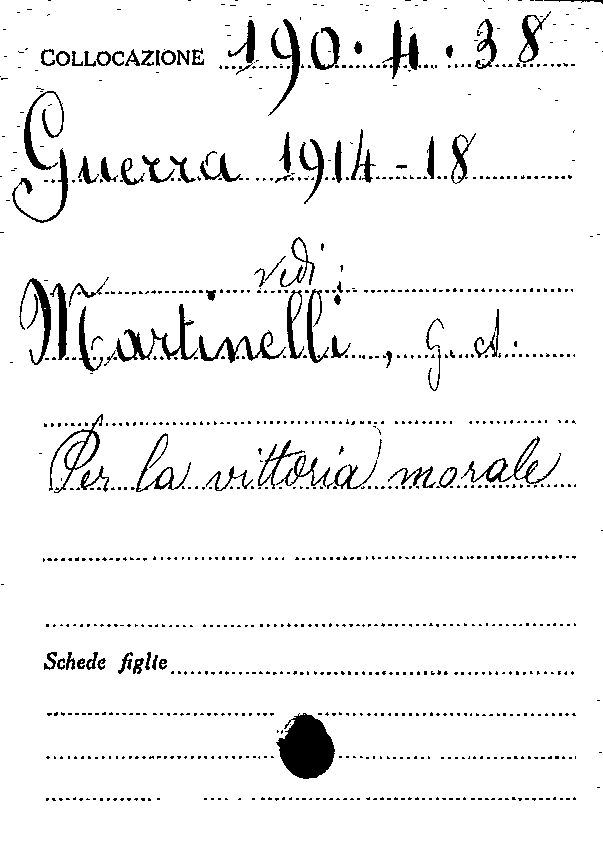 COLLOCAZIONE 190.4.38
Guerra 1914-18
vedi:
Martinelli, G. A.
Per la vittoria morale
Schede figlie